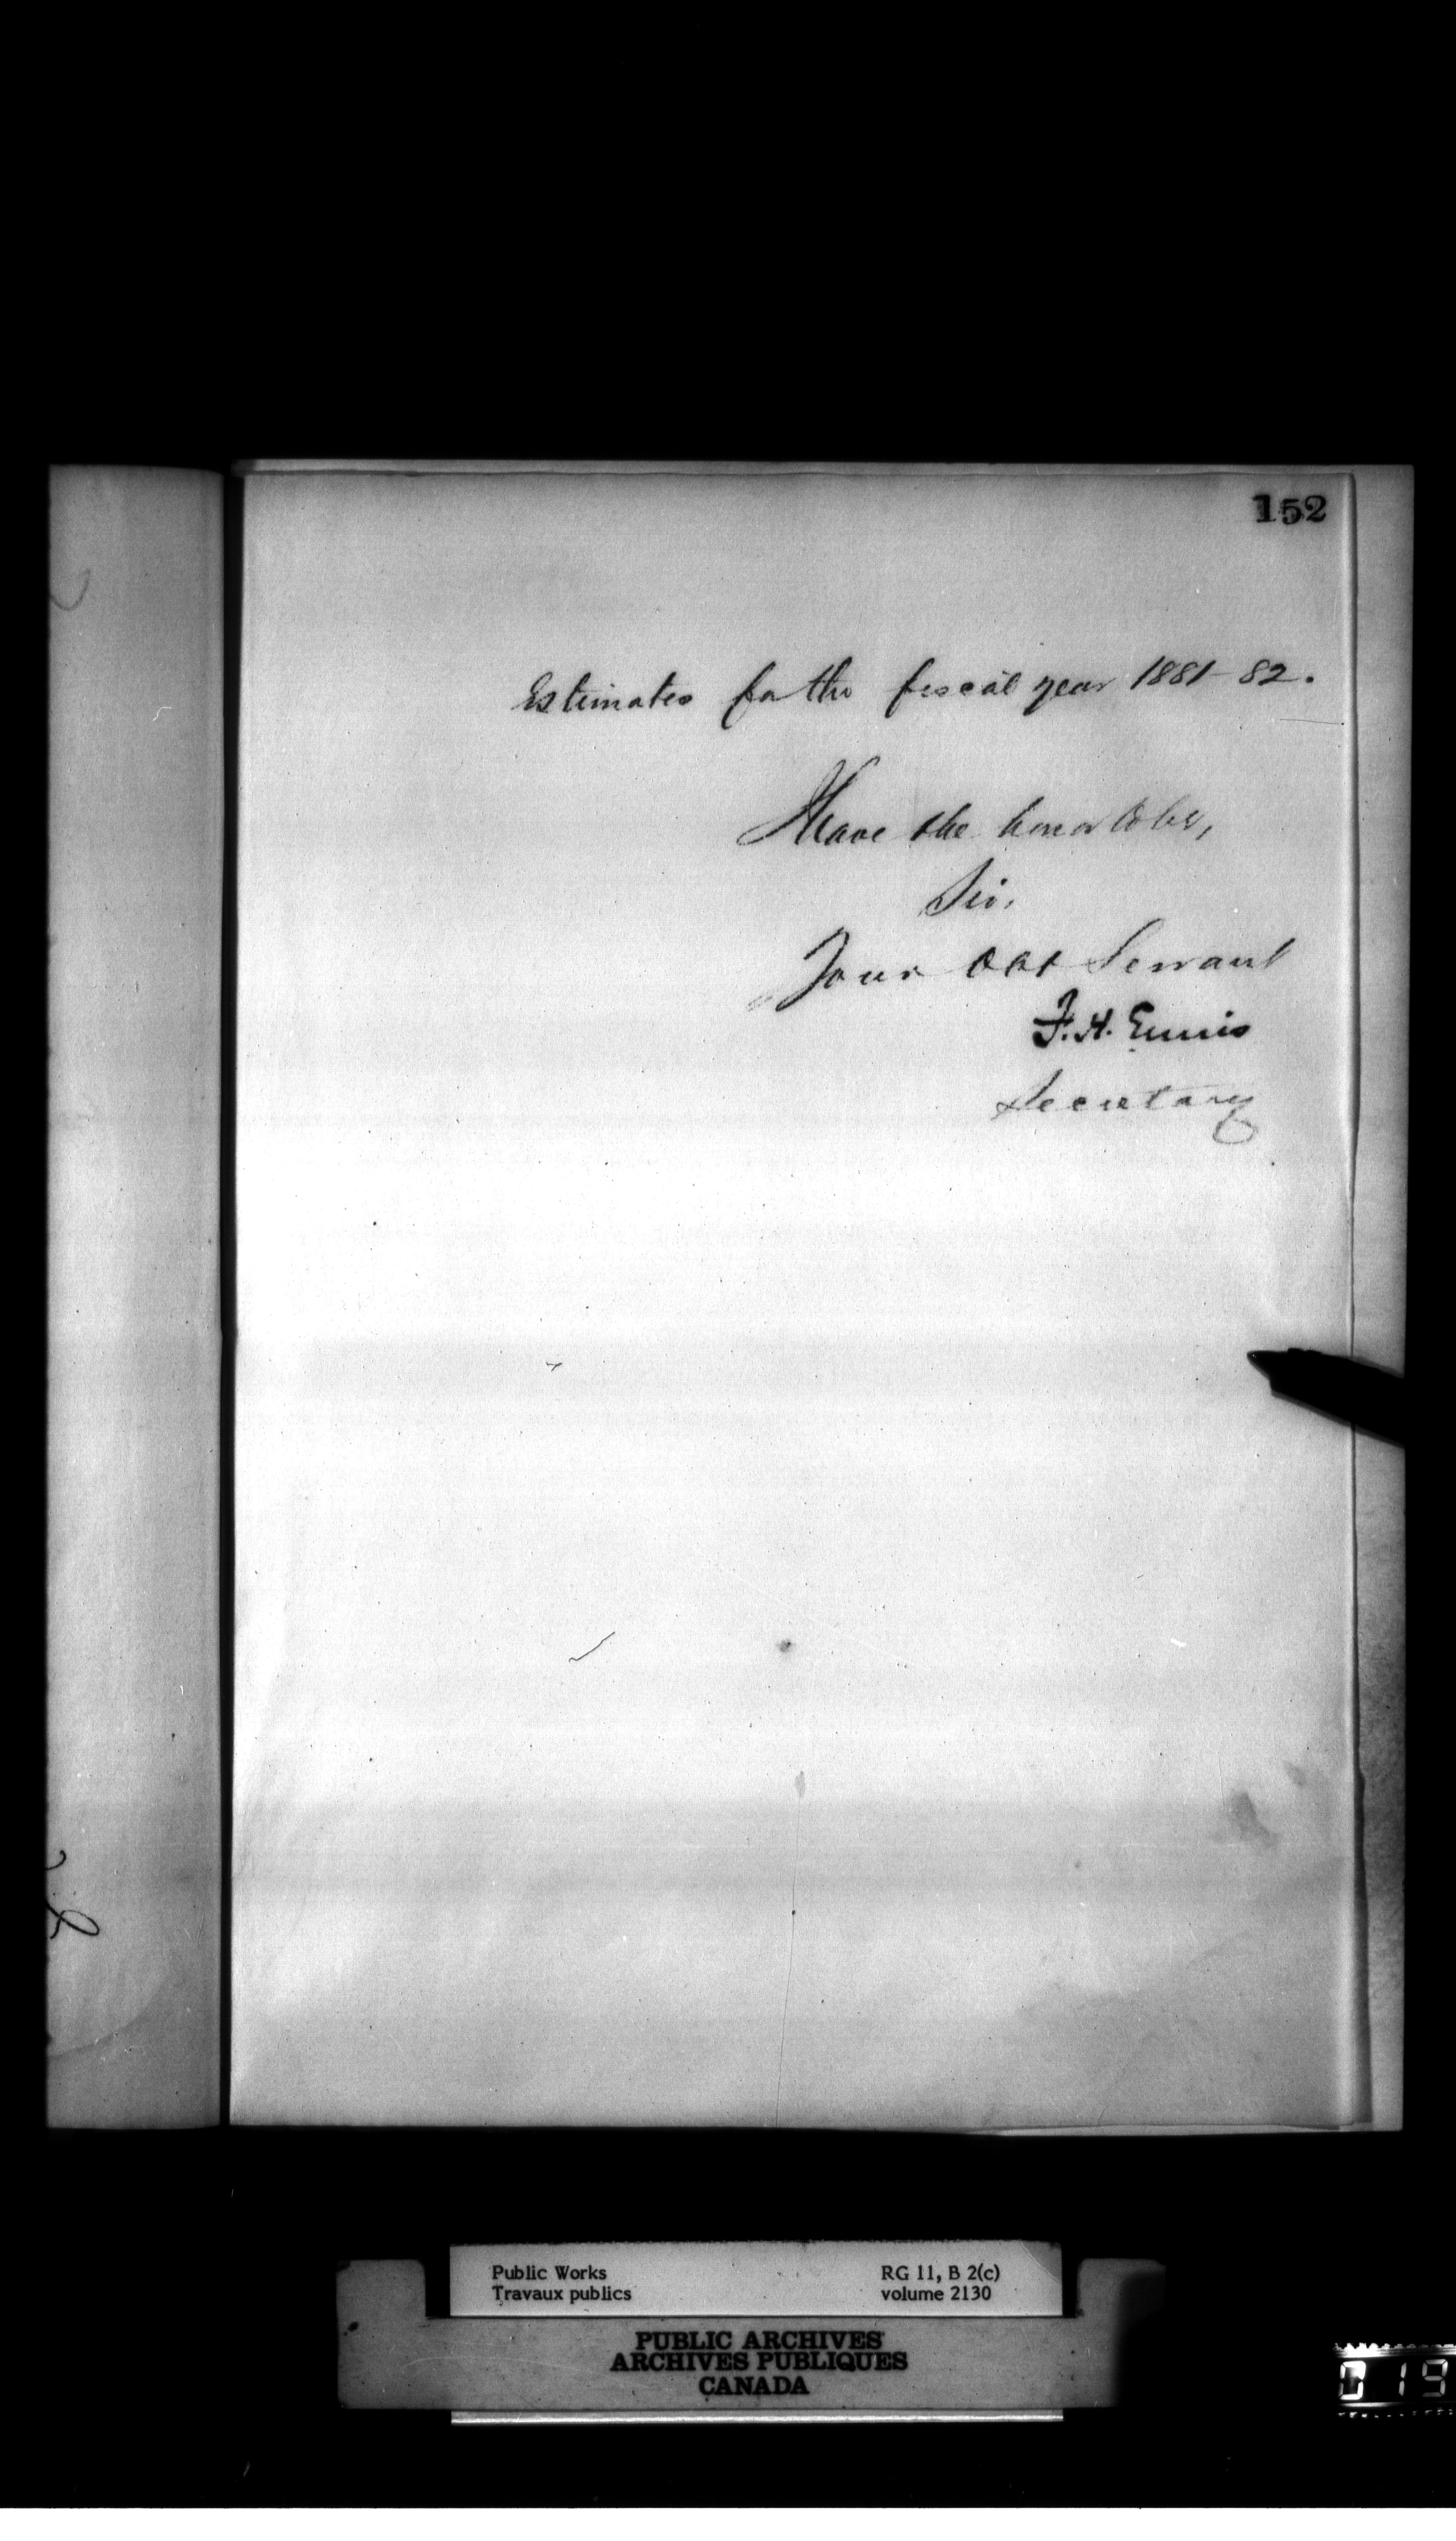 152
Estimates for the fiscal year 1881-82.
I have the honor to be,
Sir,
Your Obt Servant
F. H. Ennis
Secretary
Public Works
Travaux publics
RG 11, B 2(c)
volume 2130
PUBLIC ARCHIVES
ARCHIVES PUBLIQUES
CANADA
019